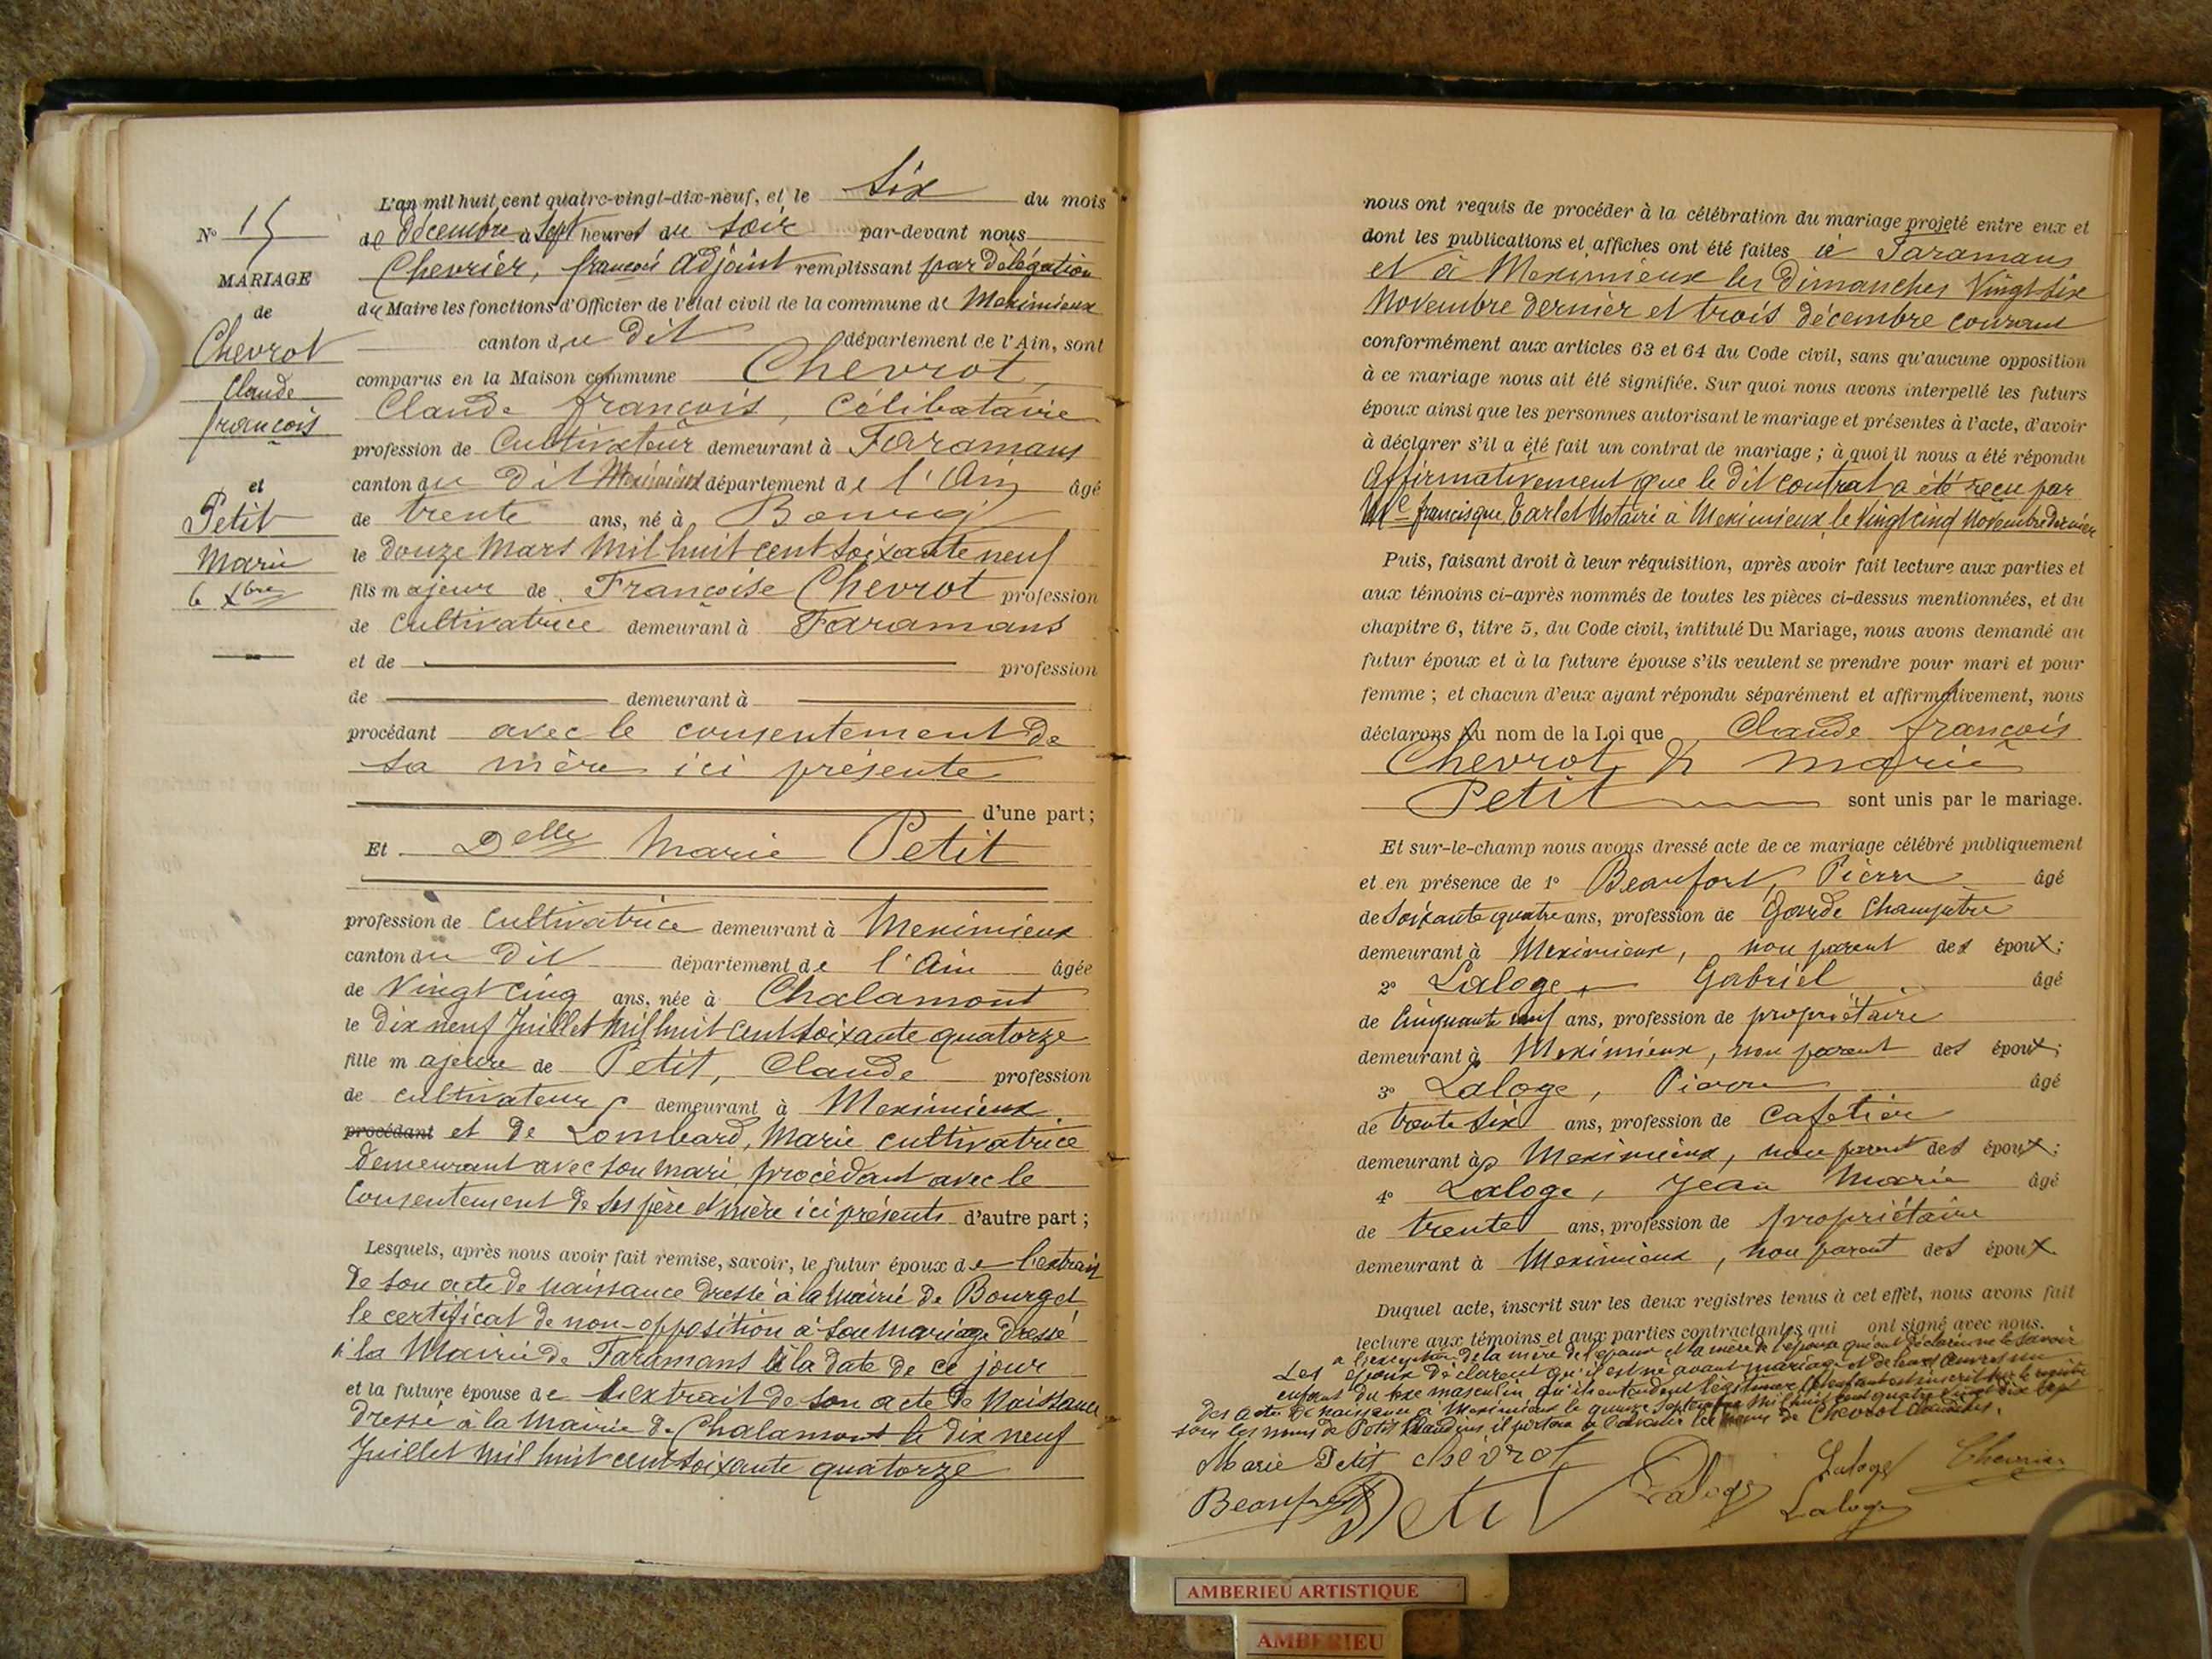 L'an mil huit cent quatre-vingt-dix-neuf, et le six du mois
de décembre à sept heures du soir par-devant nous
Chevrier, françois adjoint remplissant par délégation
du Maire les fonctions d'Officier de l'état civil de la commune de Meximieux
canton du dit département de l'Ain, sont
comparus en la Maison commune Chevrot,
Claude françois, Célibataire
profession de Cultivateur demeurant à Faramans
canton du dit Meximieux département de l'Ain âgé
de trente ans, né à Bourg
le douze Mars mil huit cent soixante neuf
fils majeur de Françoise Chevrot profession
de cultivatrice demeurant à Faramans
et de profession
de demeurant à
procédant avec le consentement de
sa mère ici présente
d'une part;
Et Delle Marie Petit
profession de cultivatrice demeurant à Meximieux
canton du dit département de l'Ain âgée
de Vingt cinq ans, née à Chalamont
le dix neuf Juillet mil huit cent soixante quatorze
fille majeure de Petit, Claude profession
de cultivateur demeurant à Meximieux
procédant et de Lombard, Marie cultivatrice
demeurant avec son mari, procédant avec le
consentement de ses père et mère ici présents d'autre part;
Lesquels, après nous avoir fait remise, savoir, le futur époux de l'extrait
de son acte de naissance dressé à la Mairie de Bourg et
le certificat de non-opposition à son mariage dressé
à la Mairie de Faramans à la date de ce jour
et la future épouse de l'extrait de son acte de Naissance
dressé à la Mairie de Chalamont le dix neuf
Juillet mil huit cent soixante quatorze
No 15
MARIAGE
de
Chevrot
Claude
françois
et
Petit
Marie
6 Xbre
nous ont requis de procéder à la célébration du mariage projeté entre eux et
dont les publications et affiches ont été faites à Faramans
et à Meximieux les Dimanches Vingt six
Novembre dernier et trois décembre courant
conformément aux articles 63 et 64 du Code civil, sans qu'aucune opposition
à ce mariage nous ait été signifiée. Sur quoi nous avons interpellé les futurs
époux ainsi que les personnes autorisant le mariage et présentes à l'acte, d'avoir
à déclarer s'il a été fait un contrat de mariage; à quoi il nous a été répondu
affirmativement que le dit contrat a été reçu par
Me francisque Tarlet Notaire à Meximieux, le Vingt cinq Novembre dernier
Puis, faisant droit à leur réquisition, après avoir fait lecture aux parties et
aux témoins ci-après nommés de toutes les pièces ci-dessus mentionnées, et du
chapitre 6, titre 5, du Code civil, intitulé Du Mariage, nous avons demandé au
futur époux et à la future épouse s'ils veulent se prendre pour mari et pour
femme; et chacun d'eux ayant répondu séparément et affirmativement, nous
déclarons Au nom de la Loi que Claude françois
Chevrot & Marie
Petit sont unis par le mariage.
Et sur-le-champ nous avons dressé acte de ce mariage célébré publiquement
et en présence de 1o Beaufort, Pierre âgé
de Soixante quatre ans, profession de Garde Champêtre
demeurant à Meximieux, non parent des époux;
2o Laloge Gabriel âgé
de Cinquante neuf ans, profession de propriétaire
demeurant à Meximieux, non parent des époux;
3o Laloge, Pierre âgé
de trente six ans, profession de Cafetier
demeurant à Meximieux, non parent des époux;
4o Laloge, Jean Marie âgé
de trente ans, profession de propriétaire
demeurant à Meximieux, non parent des époux.
Duquel acte, inscrit sur les deux registres tenus à cet effet, nous avons fait
lecture aux témoins et aux parties contractantes qui ont signé avec nous.
à l'exception de la mère de l'époux et la mère de l'épouse qui ont déclaré ne le savoir
Les époux déclarent qu'il est né avant mariage et de leurs œuvres un
enfant du sexe masculin qu'ils entendent légitimer. Cet enfant est inscrit sur le registre
des actes de naissance à Meximieux le quinze Septembre mil huit cent quatre vingt dix sept
sous les noms de Petit Claudius il portera à l'avenir les noms de Chevrot Claudius.
Marie Petit chevrot Laloge Laloge Chevrier
Beaufort Petit Laloge
AMBERIEU ARTISTIQUE
AMBERIEU